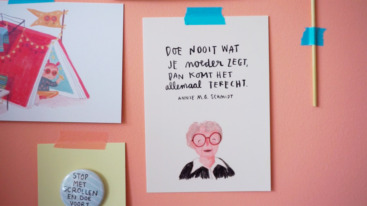 DOE NOOIT WAT
JE moeder ZEGT,
DAN KOMT HET
allemaal TERECHT.
ANNIE M.G. SCHMIDT
STOP
MET
SCROLLEN
EN OOK